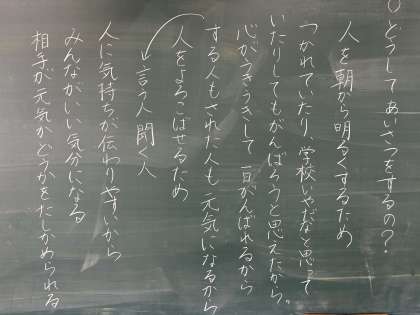 ○どうしてあいさつをするの?
人を朝から明るくするため
つかれていたり、学校いやだなと思って
いたりしてもがんばろうと思えたから。
心がうきうきして一日がんばれるから
する人もされた人も元気になるから
人をよろこばせるため
→言う人聞く人
人に気持ちが伝わりやすいから
みんながいい気分になる
相手が元気かどうかをたしかめられる